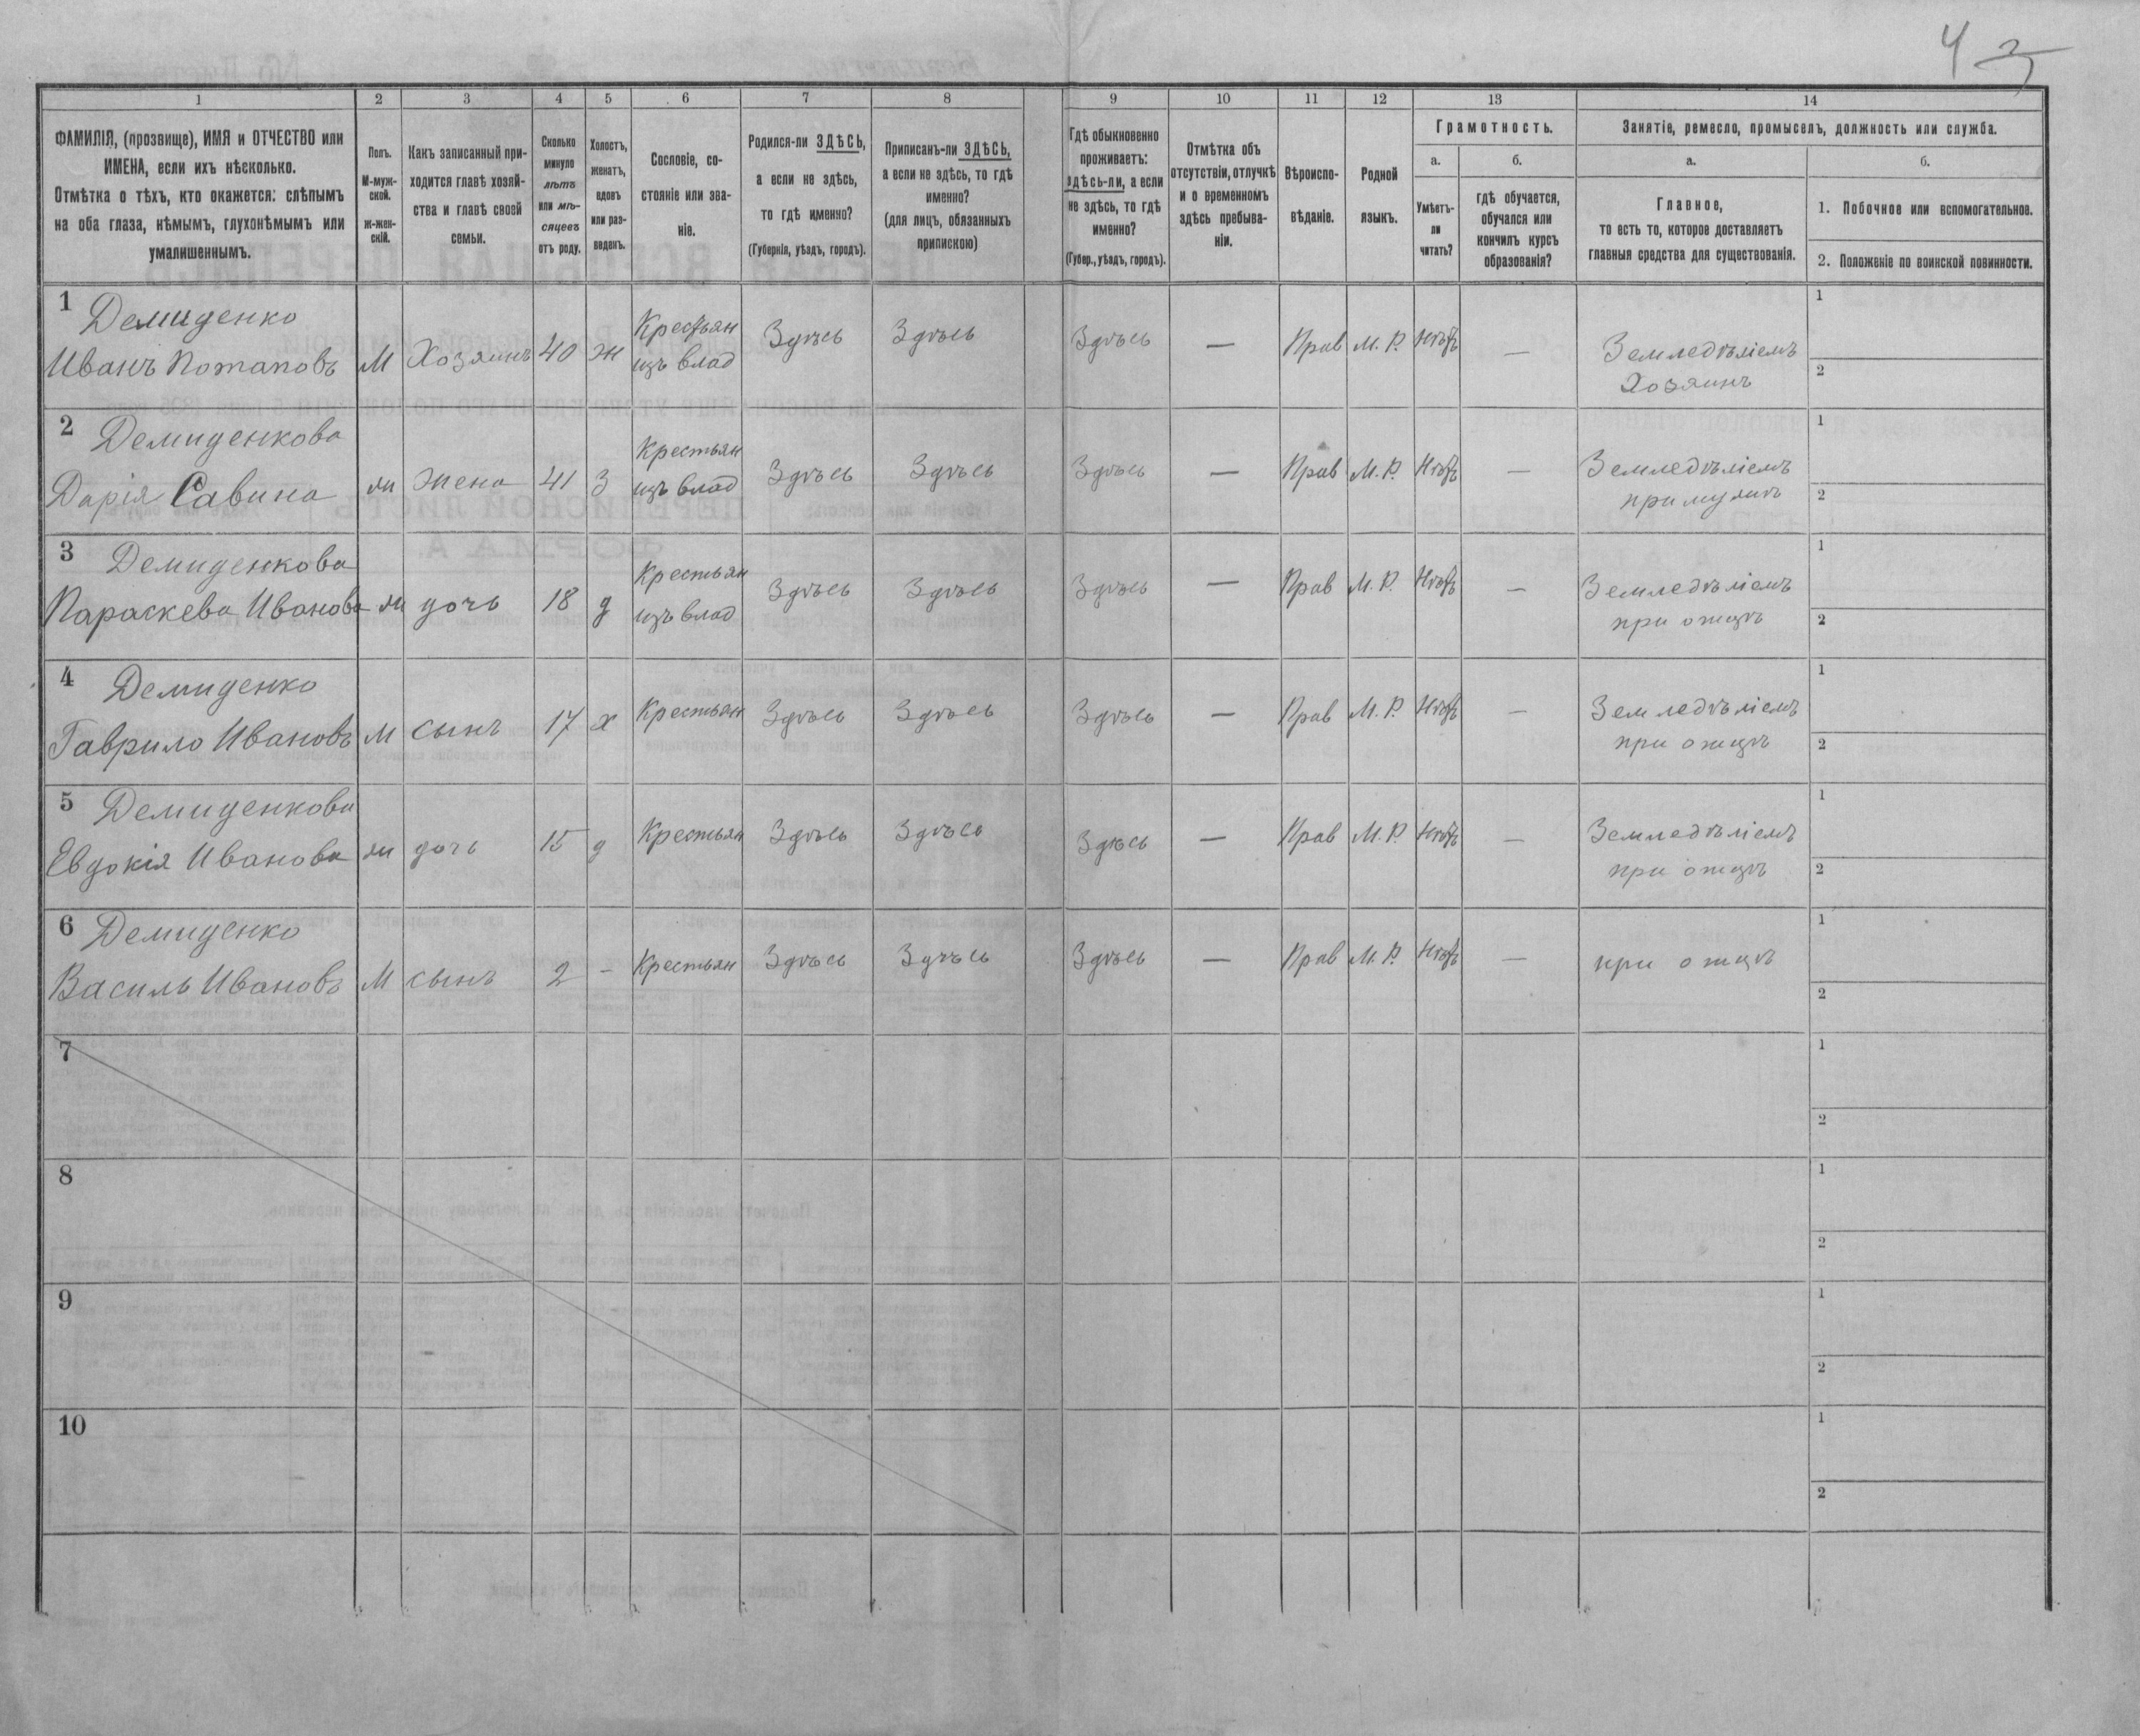 43
1 2 3 4 5 6 7 8 9 10 11 12 13 14
ФАМИЛІЯ, (прозвище), ИМЯ и ОТЧЕСТВО или
ИМЕНА, если ихъ нѣсколько.
Отмѣтка о тѣхъ, кто окажется: слѣпымъ
на оба глаза, нѣмымъ, глухонѣмымъ или
умалишеннымъ.
Полъ.
М-муж-
ской.
ж-жен-
скій.
Какъ записанный при-
ходится главѣ хозяй-
ства и главѣ своей
семьи.
Сколько
минуло
лѣтъ
или мѣ-
сяцевъ
отъ роду.
Холостъ,
женатъ,
вдовъ
или раз-
веденъ.
Сословіе, со-
стояніе или зва-
ніе.
Родился-ли ЗДѢСЬ,
а если не здѣсь,
то гдѣ именно?
(Губернія, уѣздъ, городъ).
Приписанъ-ли ЗДѢСЬ,
а если не здѣсь, то гдѣ
именно?
(для лицъ, обязанныхъ
припискою)
Гдѣ обыкновенно
проживаетъ:
здѣсь-ли, а если
не здѣсь, то гдѣ
именно?
(Губер., уѣздъ, городъ).
Отмѣтка объ
отсутствіи, отлучкѣ
и о временномъ
здѣсь пребыва-
ніи.
Вѣроиспо-
вѣданіе.
Родной
языкъ.
Грамотность.
а.
Умѣетъ-
ли
читать?
б.
гдѣ обучается,
обучался или
кончилъ курсъ
образованія?
Занятіе, ремесло, промыселъ, должность или служба.
а.
Главное,
то есть то, которое доставляетъ
главныя средства для существованія.
б.
1. Побочное или вспомогательное.
2. Положеніе по воинской повинности.
1 Демиденко
Иванъ Потаповъ М Хозяинъ 40 ж Крестьян изъ влад Здѣсь Здѣсь Здѣсь — Прав М. Р. Нѣтъ — Земледѣліемъ Хозяинъ 1 2
2 Демиденкова
Дарія Савина ж Жена 41 З Крестьян изъ влад Здѣсь Здѣсь Здѣсь — Прав М. Р. Нѣтъ — Земледѣліемъ при мужѣ 1 2
3 Демиденкова
Параскева Иванова ж дочь 18 д Крестьян изъ влад Здѣсь Здѣсь Здѣсь — Прав М. Р. Нѣтъ — Земледѣліемъ при отцѣ 1 2
4 Демиденко
Гаврило Ивановъ М сынъ 17 х Крестьян Здѣсь Здѣсь Здѣсь — Прав М. Р. Нѣтъ — Земледѣліемъ при отцѣ 1 2
5 Демиденкова
Евдокія Иванова ж дочь 15 д Крестьян Здѣсь Здѣсь Здѣсь — Прав М. Р. Нѣтъ — Земледѣліемъ при отцѣ 1 2
6 Демиденко
Василь Ивановъ М сынъ 2 - Крестьян Здѣсь Здѣсь Здѣсь — Прав М. Р. Нѣтъ — при отцѣ 1 2
7 1 2
8 1 2
9 1 2
10 1 2